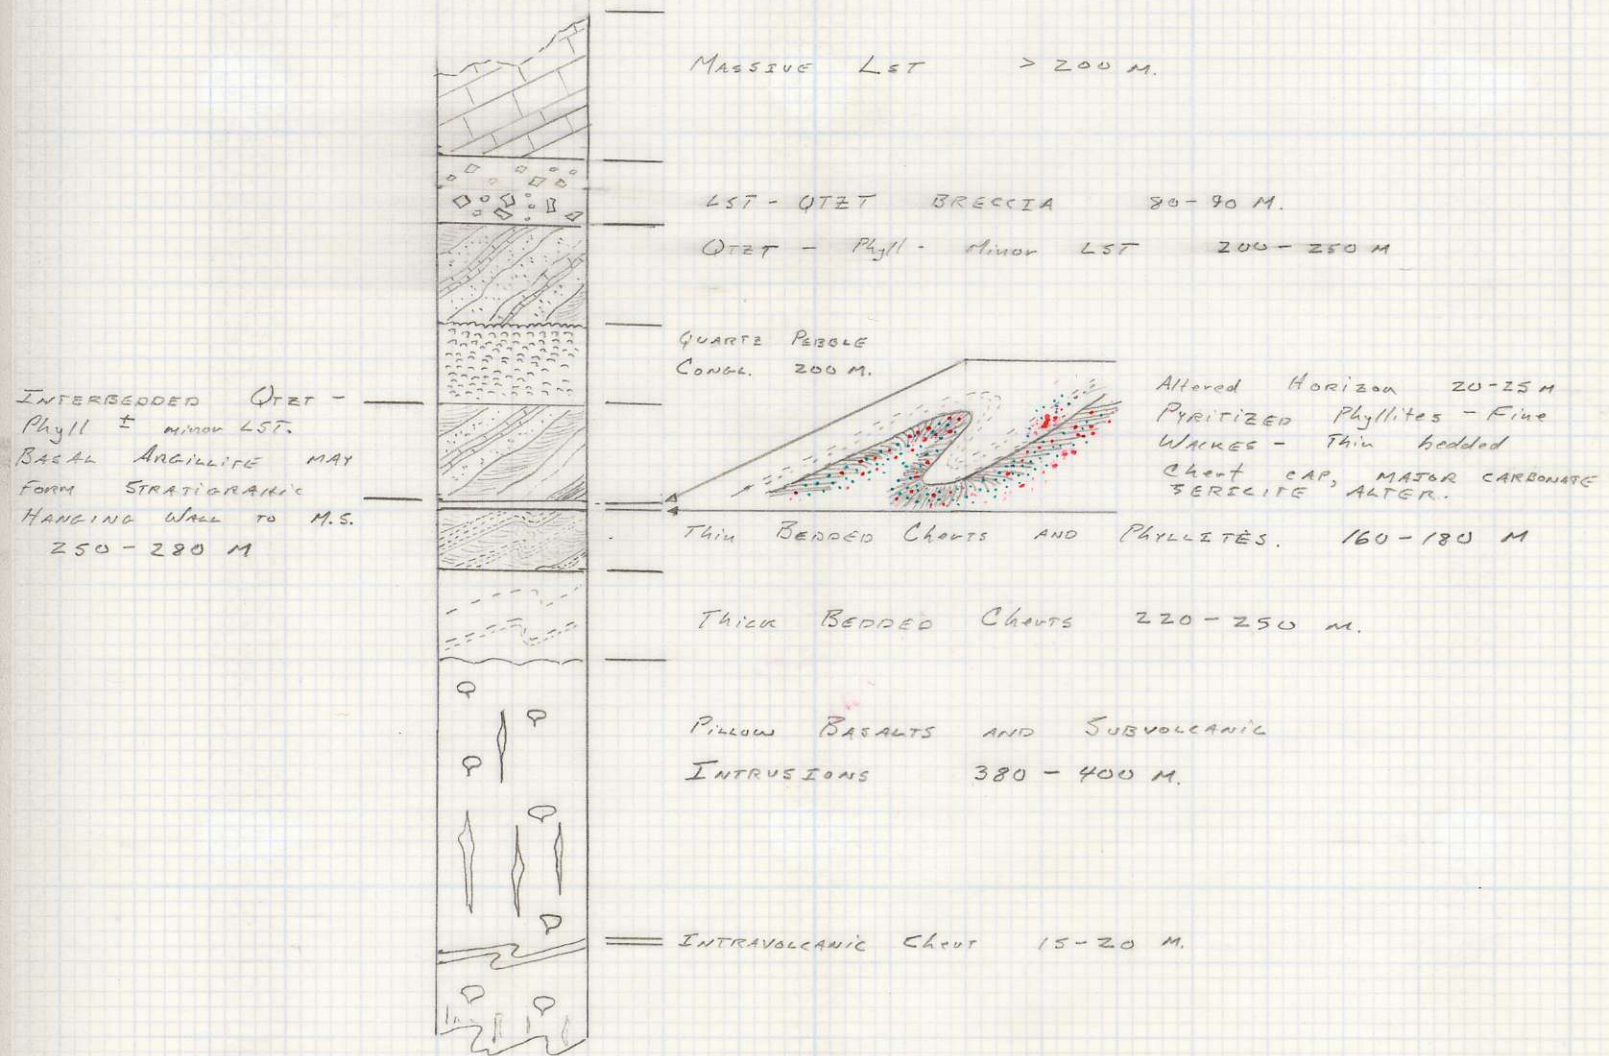 MASSIVE LST > 200 M.
LST - QTZT BRECCIA 80-90 M.
QTZT - Phyll - Minor LST 200-250 M
QUARTZ PEBBLE
CONGL. 200 M.
INTERBEDDED QTZT -
Phyll ± minor LST.
BASAL ARGILLITE MAY
FORM STRATIGRAHIC
HANGING WALL TO M.S.
250-280 M
Altered Horizon 20-25 M
PYRITIZED Phyllites - Fine
WACKES - Thin bedded
Chert CAP, MAJOR CARBONATE
SERICITE ALTER.
Thin BEDDED Cherts AND PHYLLITES. 160-180 M
Thick BEDDED Cherts 220-250 M.
PILLOW BASALTS AND SUBVOLCANIC
INTRUSIONS 380-400 M.
INTRAVOLCANIC Chert 15-20 M.